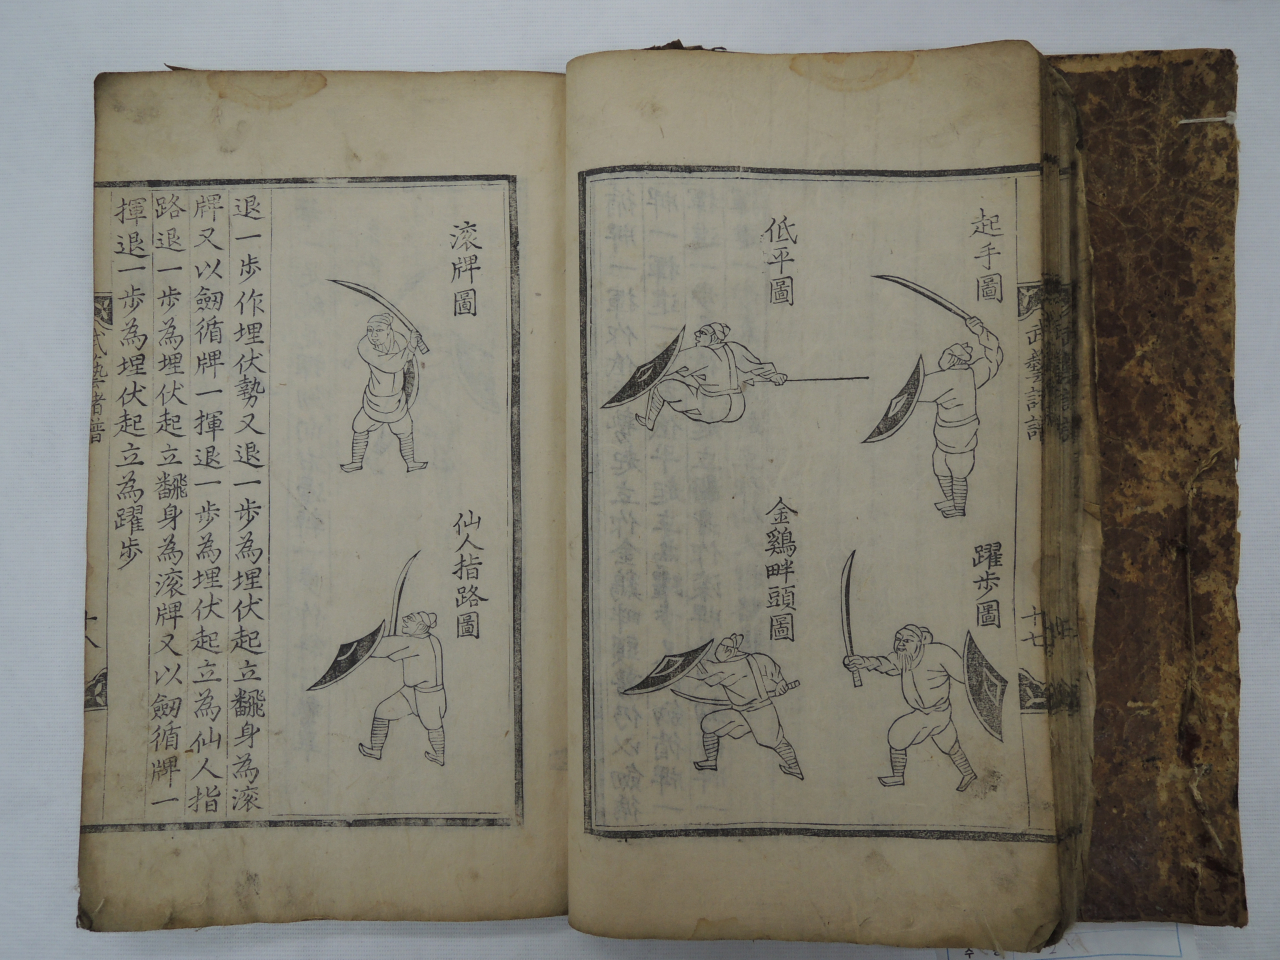 武藝諸譜
十七
起手圖
躍步圖
低平圖
金鷄畔頭圖
滚牌圖
仙人指路圖
退一步作埋伏勢又退一步為埋伏起立飜身為滚
牌又以劔循牌一揮退一步為埋伏起立為仙人指
路退一步為埋伏起立飜身為滚牌又以劔循牌一
揮退一步為埋伏起立為躍步
武藝諸譜
十八